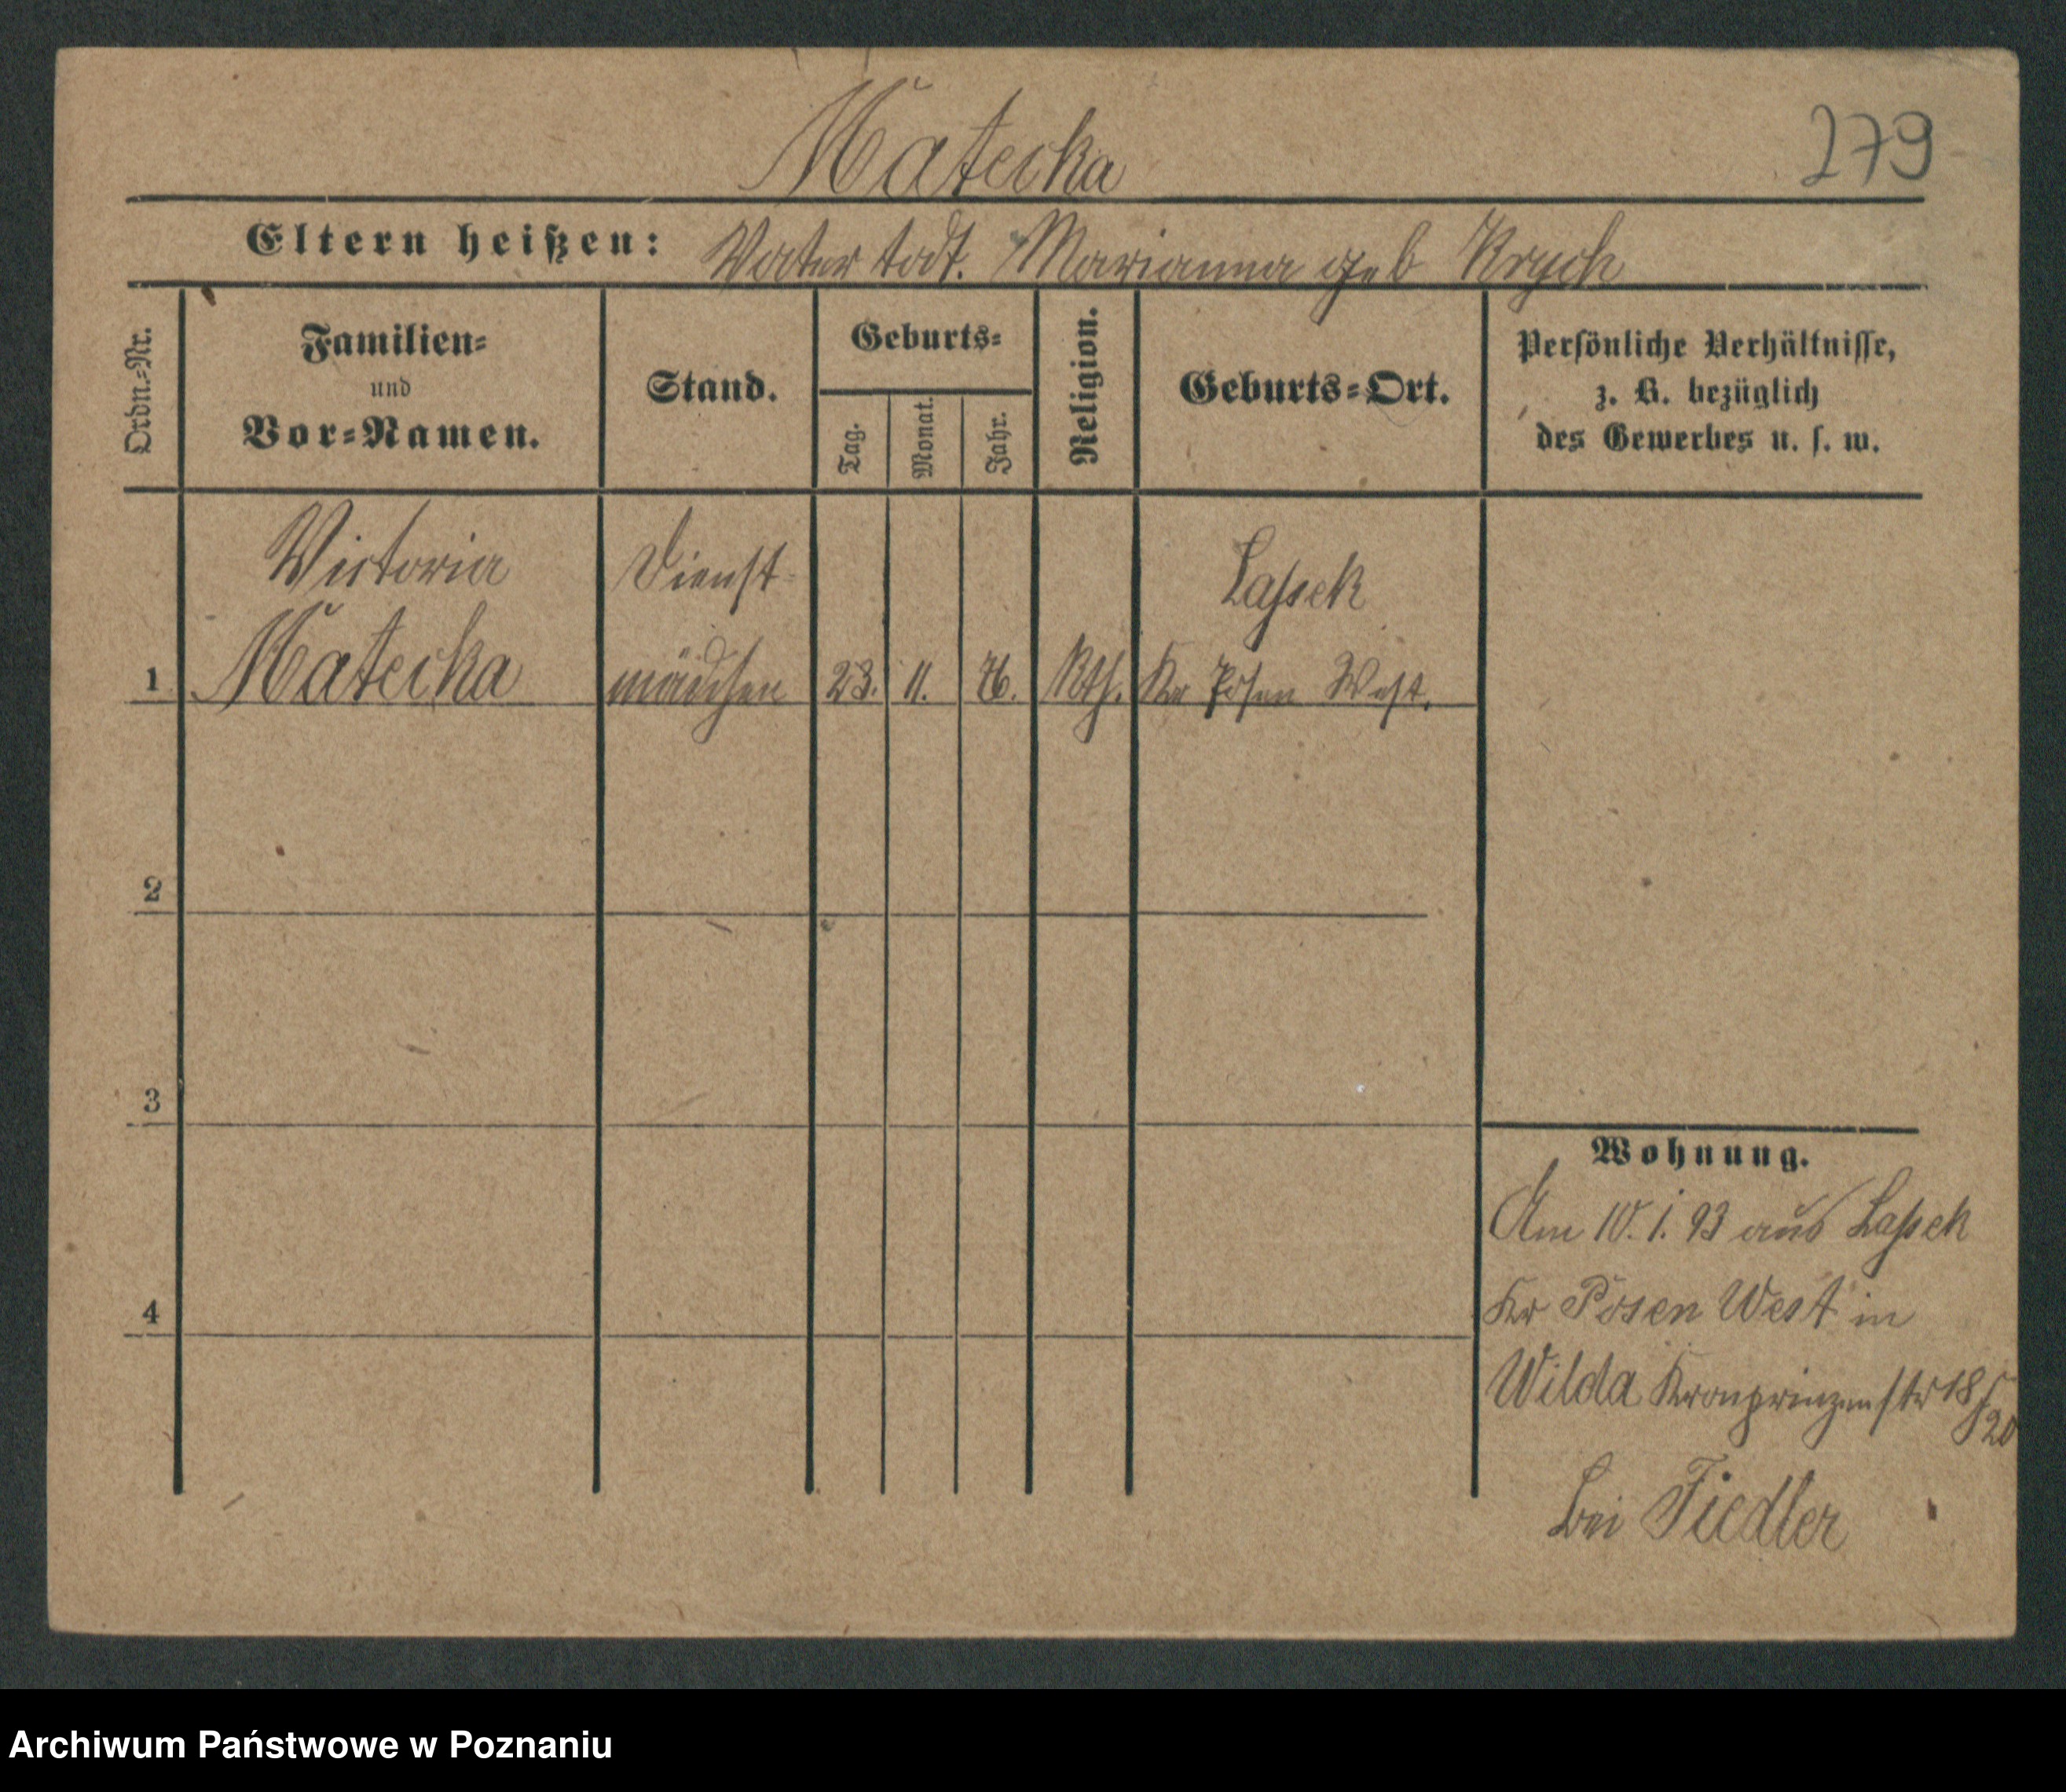 Matecka
279
Eltern heißen: Vater todt. Marianna geb Krych
Ordn.-Nr.
Familien-
und
Vor-Namen.
Stand.
Geburts-
Tag.
Monat.
Jahr.
Religion.
Geburts-Ort.
Persönliche Verhältnisse,
z. B. bezüglich
des Gewerbes u. s. w.
Victoria Dienst- Lassek
1 Matecka mädchen 23. 11. 76. Kth. Kr Posen West.
2
3
4
Wohnung.
Am 10. 1. 93 aus Lassek
Kr Posen West in
Wilda Kronprinzenstr 18/20
bei Fiedler
Archiwum Państwowe w Poznaniu